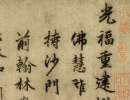 光福重建塔
佛慧雄
持沙門
前翰林